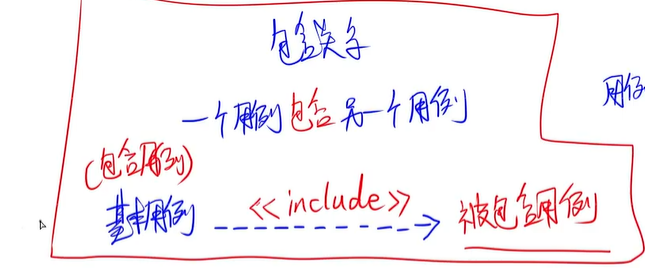 包含关系
一个用例包含另一个用例
用例
(包含用例)
基本用例 <<include>> 被包含用例